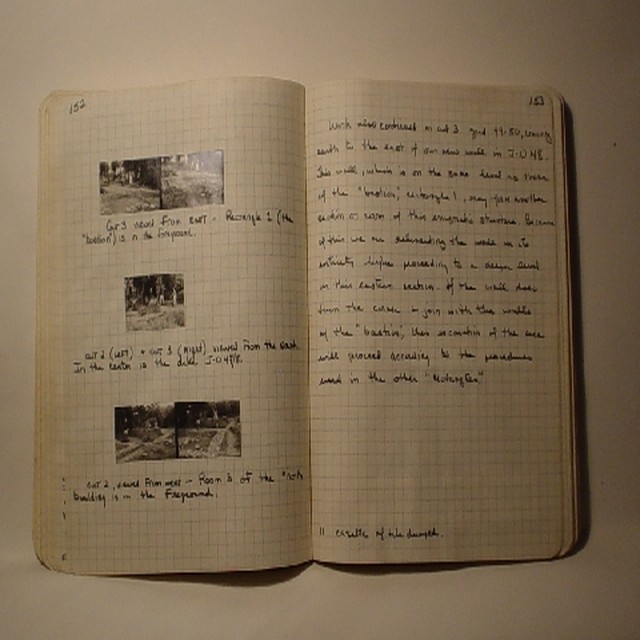 152
Cut 3 viewed from east - Rectangle 1 (the
"bastion") is in the foreground.
Cut 2 (left) + Cut 3 (right) viewed from the south
In the center is the dike J-O 47/8.
Cut 2, viewed from west - Room 3 of the "north
building is in the foreground.
153
Work also continued in cut 3 grid 49-50,
earth to the east of our new wall in J-O 48.
This wall, which is on the same level as those
of the "bastion," rectangle 1, may form another
section or room of this enigmatic structure. Because
of this we are the in its
entirety before proceeding to a deeper level
in this eastern section. If the wall does
turn the corner to join with the walls
of the "bastion," then excavation of the area
will proceed according to the procedures
used in the other "rectangles"
11 of tile dumped.